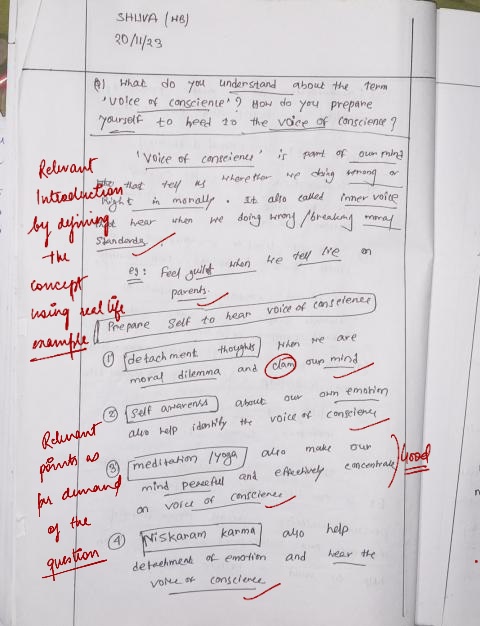 SHUVA (HB)
20/11/23
Q) What do you understand about the term
'voice of conscience'? How do you prepare
yourself to heed to the voice of conscience?
'Voice of conscience' is part of our mind
that tell us wherether we doing wrong or
Right in morally. It also called inner voice
that hear when we doing wrong / breaking moral
standards.
eg: Feel guilt when we tell lie on
parents.
Relevant
Introduction
by defining
the
concept
using real life
example
Prepare Self to hear voice of conscience
① detachment thoughts when we are
moral dilemma and clam our mind
② Self awarenss about our own emotion
also help identify the voice of conscience
③ meditation / yoga also make our
mind peaceful and effectively concentrate
on voice of conscience
Good
④ Niskaram karma also help
detachment of emotion and hear the
voice of conscience
Relevant
points as
per demand
of the
question